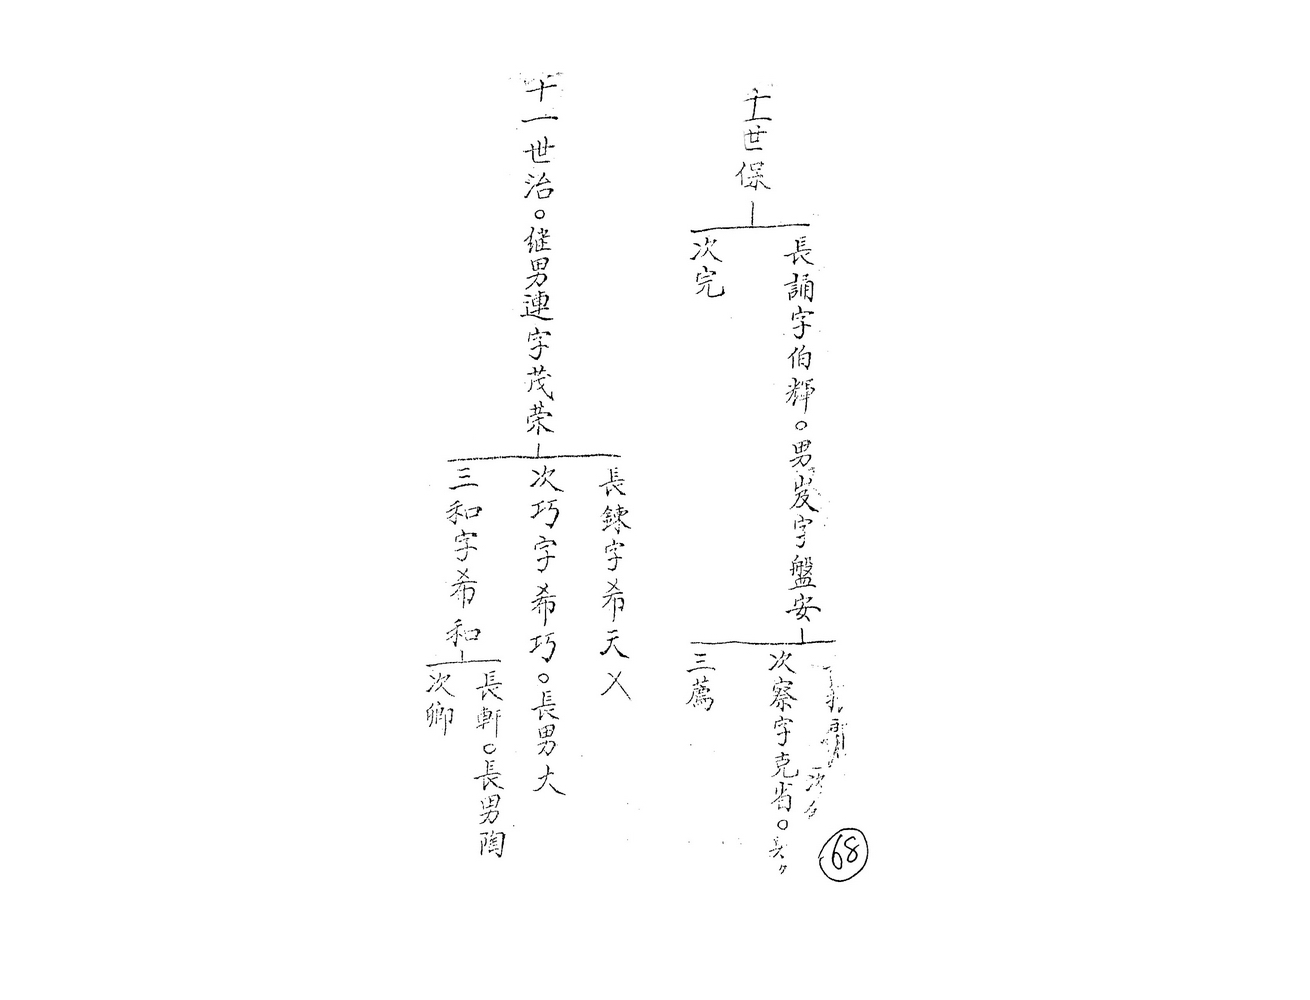 十一世保
長誦字伯輝。男岌字盤安
次完
次察字克省。長
三薦
十一世治。継男連字茂荣
長鍊字希天乂
次巧字希巧。長男大
三和字希和
長軒。長男陶
次卿
68